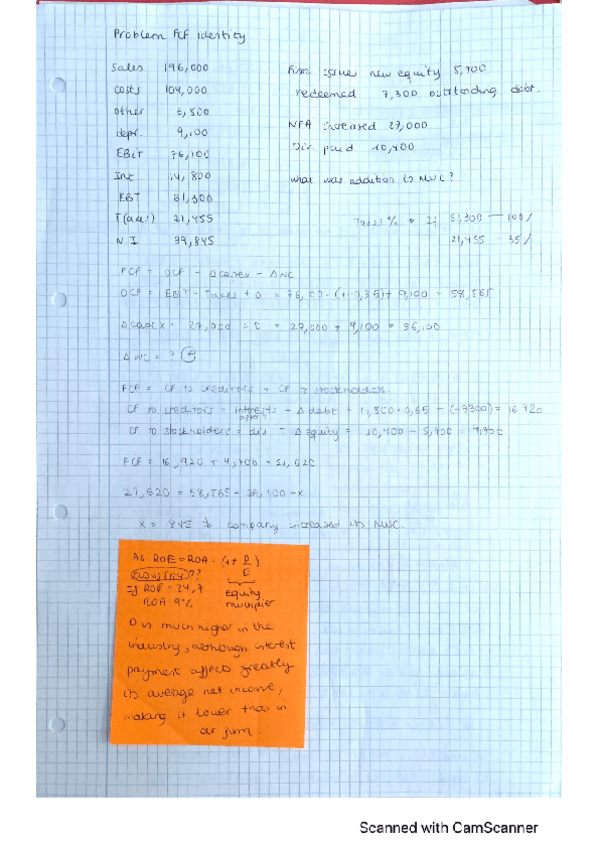 Problem FCF Identity
Sales 196,000
costs 104,000
other 6,800
depr. 9,100
EBIT 76,100
Int 14,800
EBT 61,300
T(axes) 21,455
N.I 39,845
Firm issues new equity 5,700
redeemed 7,300 outstanding debt.
NFA increased 27,000
Div paid 10,400
what was addition to NWC?
Taxes % → If 61,300 — 100%
21,455 — 35%
FCF = OCF - Δcapex - ΔNC
OCF = EBIT - Taxes + D = 76,100 · (1-0,35) + 9,100 = 58,565
Δcapex = 27,000 + D = 27,000 + 9,100 = 36,100
ΔNC = ?
FCF = CF to creditors + CF to stockholders
CF to creditors = interests - Δ debt = 14,800 · 0,65 - (-7300) = 16 920
CF to stockholders = div - Δequity = 10,400 - 5,700 = 4,700
FCF = 16,920 + 4,700 = 21,620
21,620 = 58,565 - 36,100 - x
x = 845 company increased its NWC.
As ROE = ROA · (1+ D/E)
INDUSTRY??
If ROE = 24,7
ROA 9%
Equity
multiplier
D is much higher in the
industry, although interest
payment affects greatly
its average net income,
making it lower than in
our firm.
Scanned with CamScanner